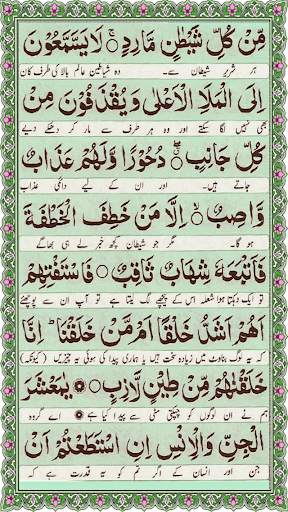 مِّنْ كُلِّ شَيْطٰنٍ مَّارِدٍ ۚ لَا يَسَّمَّعُوْنَ
ہر شریر شیطان سے۔ وہ شیاطین عالم بالا کی طرف کان
اِلَى الْمَلَاِ الْاَعْلٰى وَيُقْذَفُوْنَ مِنْ
بھی نہیں لگا سکتے اور وہ ہر طرف سے مار کر دھکے دیے
كُلِّ جَانِبٍ ۖ دُحُوْرًا وَّلَهُمْ عَذَابٌ
جاتے ہیں۔ اور ان کے لیے دائمی عذاب
وَّاصِبٌ ۙ اِلَّا مَنْ خَطِفَ الْخَطْفَةَ
ہو گا۔ مگر جو شیطان کچھ خبر لے ہی بھاگے
فَاَتْبَعَهٗ شِهَابٌ ثَاقِبٌ ۝ فَاسْتَفْتِهِمْ
تو ایک دہکتا ہوا شعلہ اس کے پیچھے لگ لیتا ہے تو آپ ان سے پوچھئے
اَهُمْ اَشَدُّ خَلْقًا اَمْ مَّنْ خَلَقْنَا ؕ اِنَّا
کہ یہ لوگ بناوٹ میں زیادہ سخت ہیں یا ہماری پیدا کی ہوئی یہ چیزیں (کیونکہ)
خَلَقْنٰهُمْ مِّنْ طِيْنٍ لَّازِبٍ ۝ يٰمَعْشَرَ
ہم نے ان لوگوں کو چپکتی مٹی سے پیدا کیا ہے ۝ اے گروہ
الْجِنِّ وَالْاِنْسِ اِنِ اسْتَطَعْتُمْ اَنْ
جن اور انسان کے اگر تم کو یہ قدرت ہے کہ